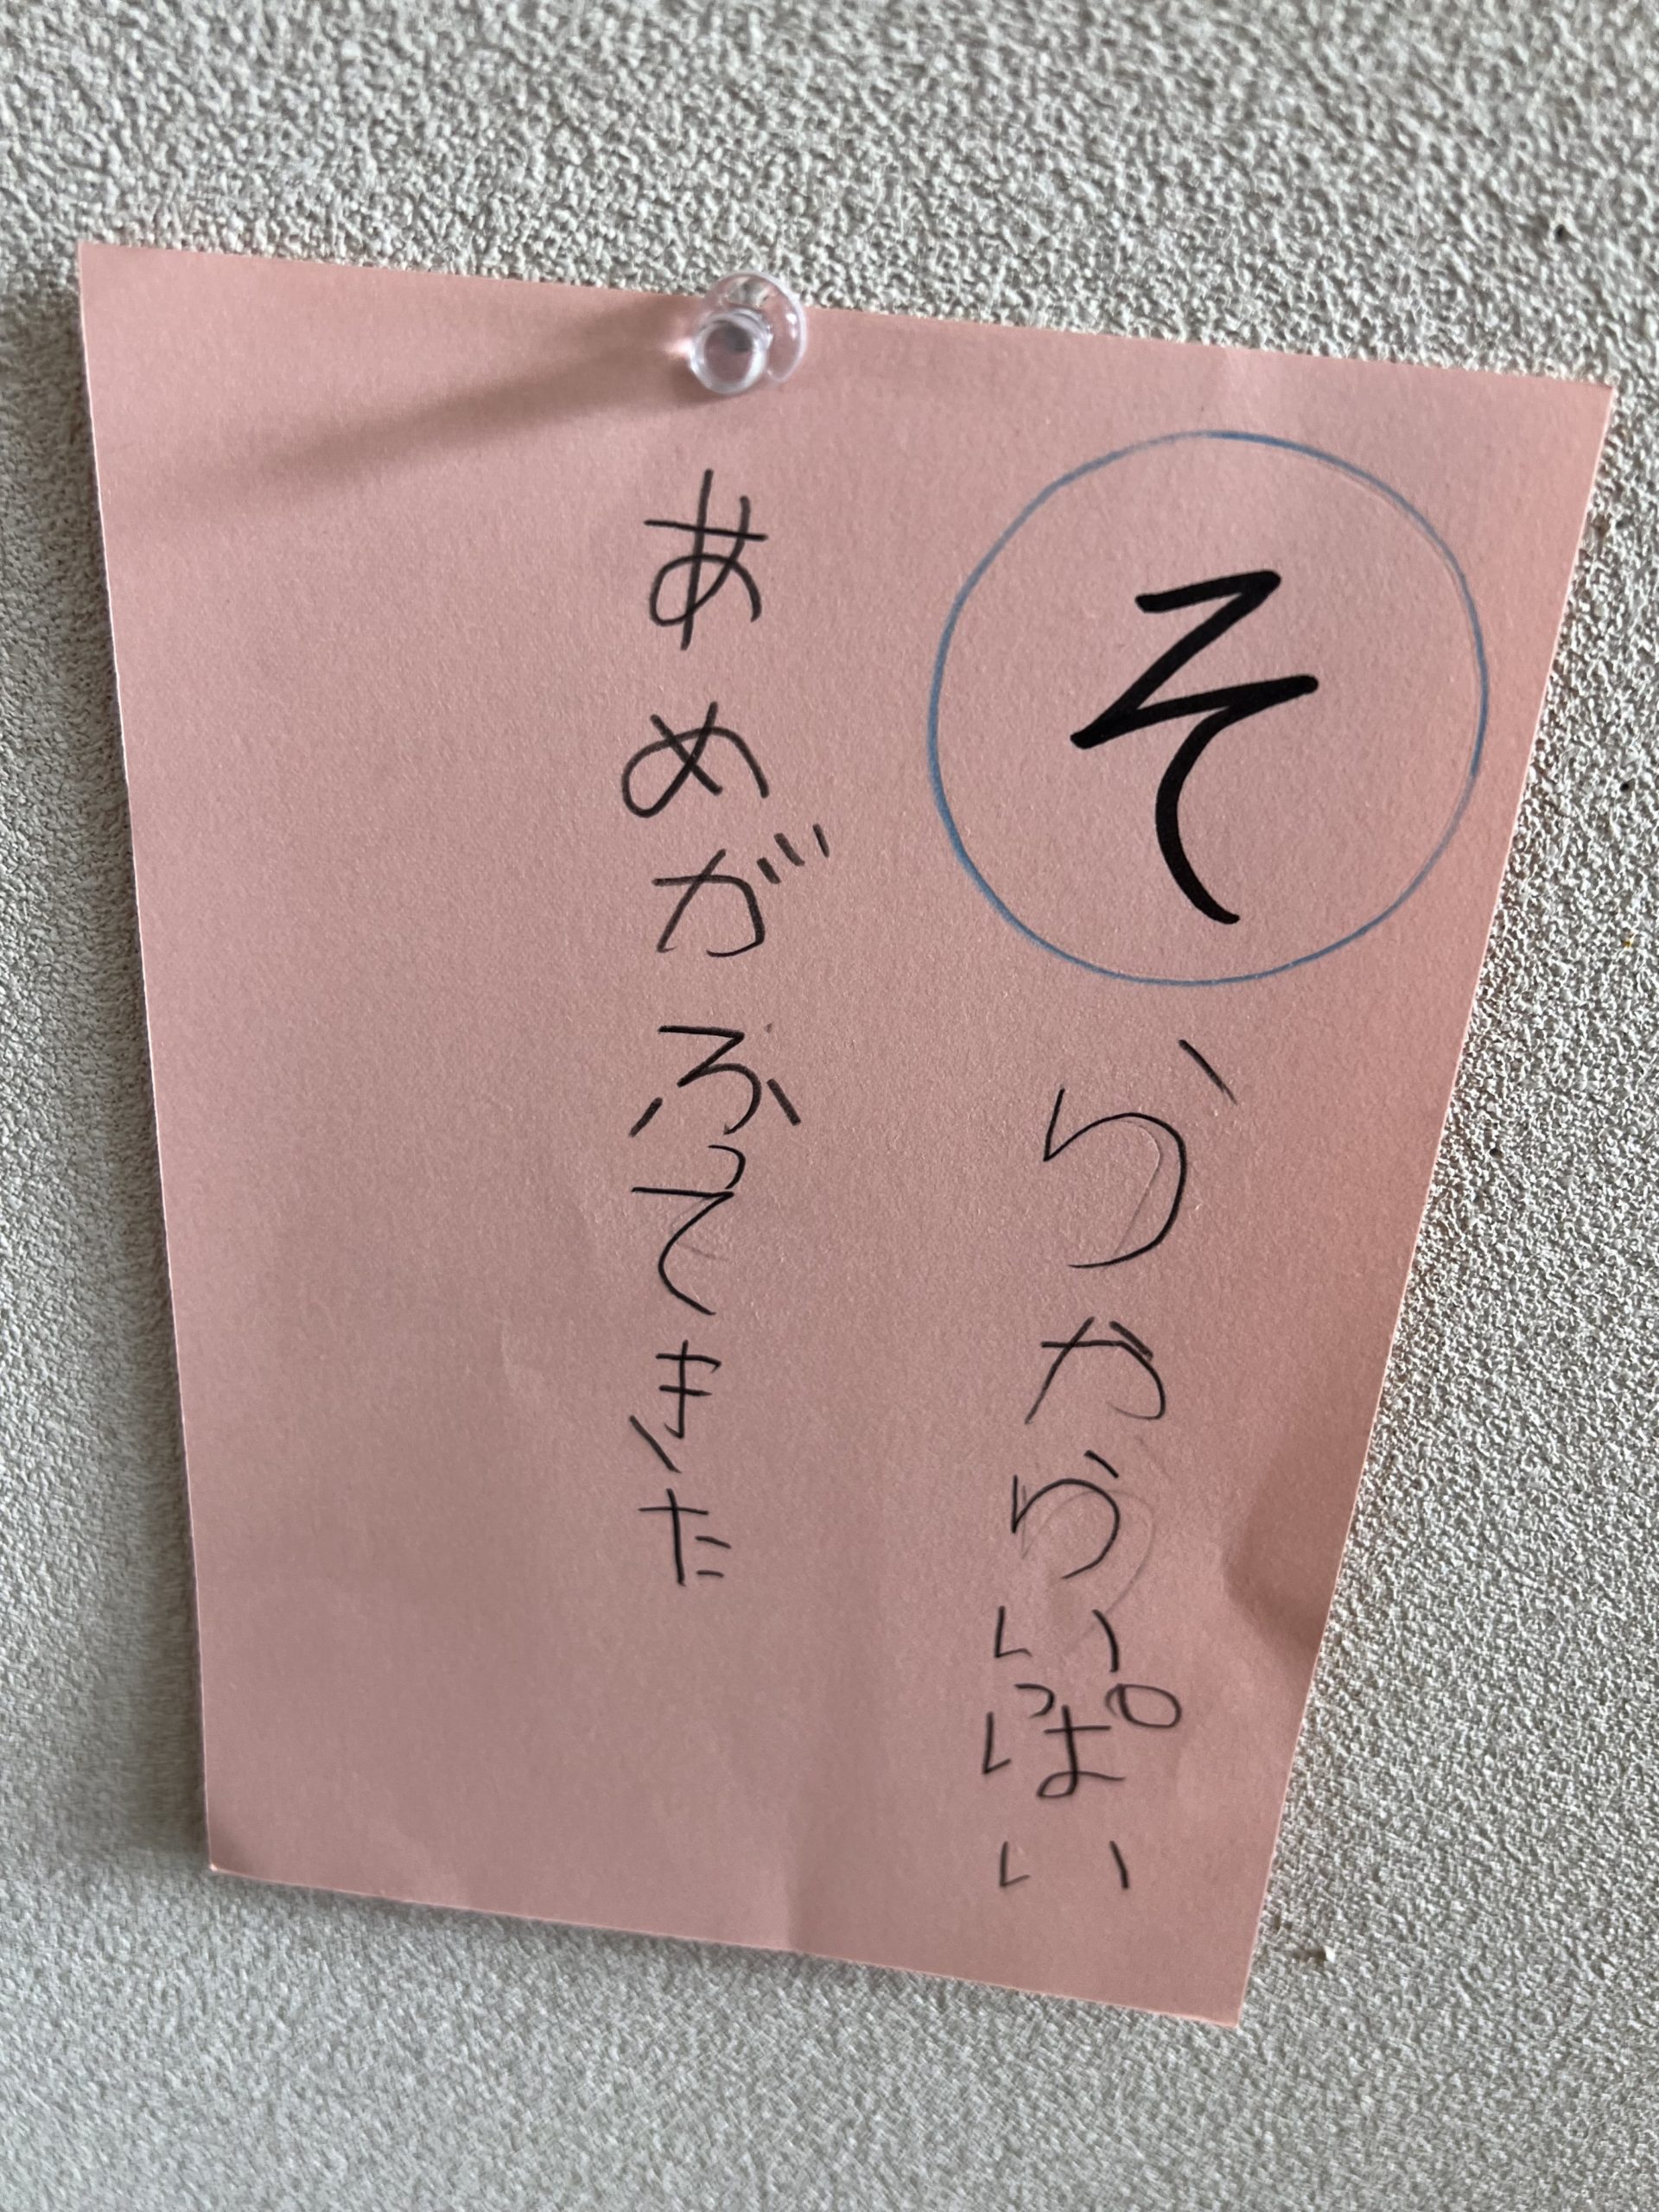 そらからいっぱい
あめがふってきた